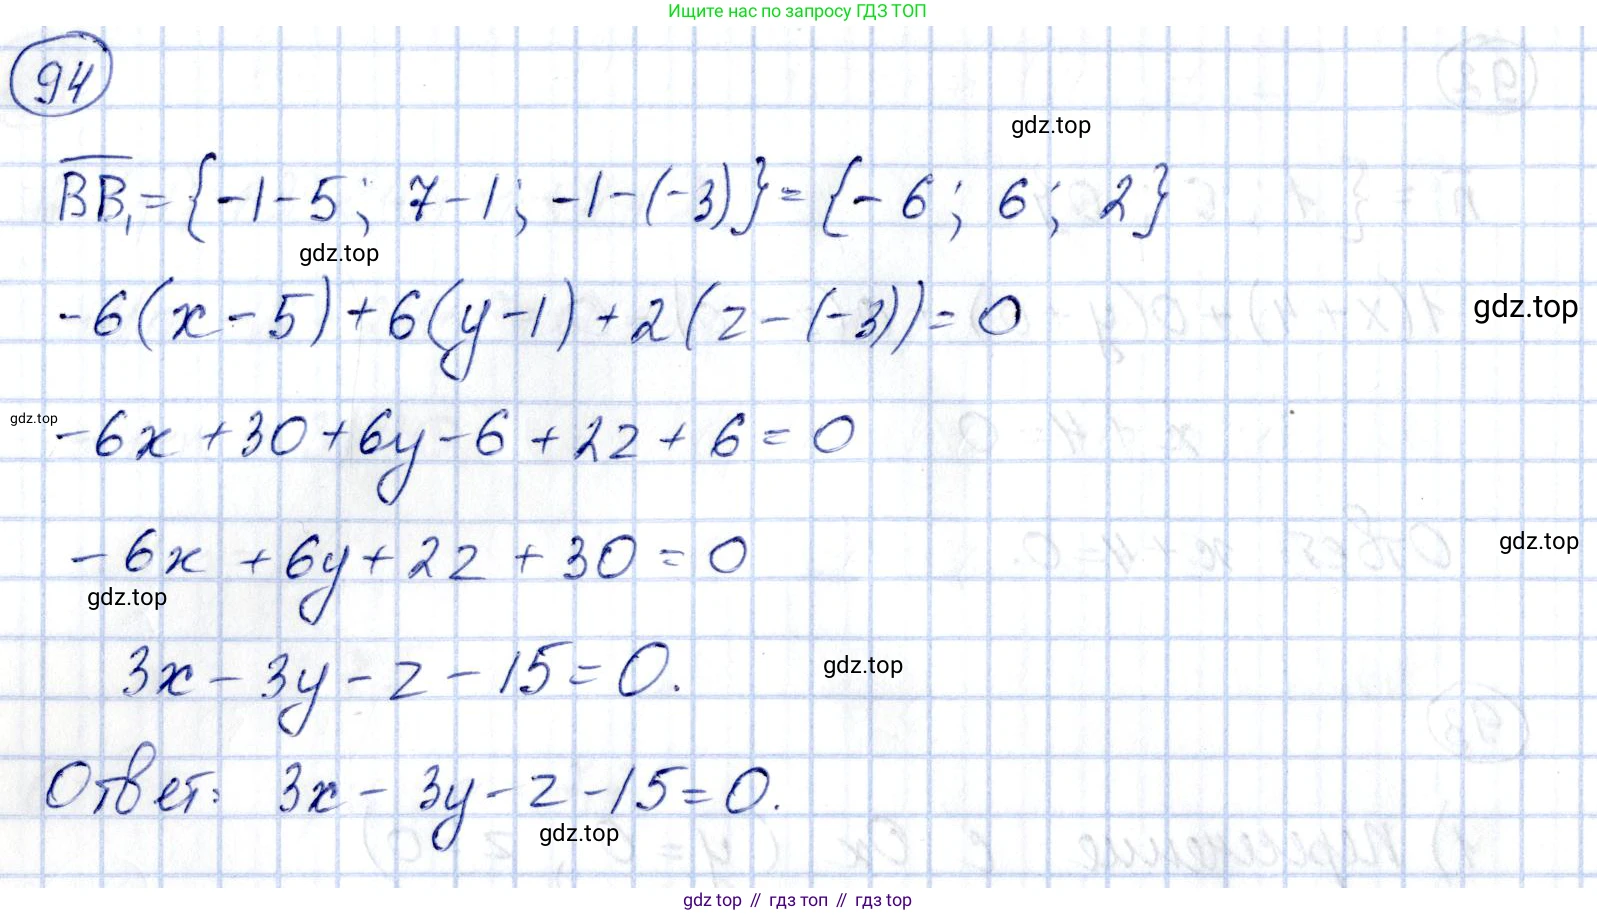 Ищите нас по запросу ГДЗ ТОП
94
gdz.top
BB₁ = {-1-5; 7-1; -1-(-3)} = {-6; 6; 2}
gdz.top
-6(x-5)+6(y-1)+2(z-(-3))=0
gdz.top
gdz.top
-6x+30+6y-6+2z+6=0
-6x+6y+2z+30=0
gdz.top
gdz.top
3x-3y-z-15=0.
gdz.top
Ответ: 3x-3y-z-15=0.
gdz.top
gdz top // гдз топ // gdz.top